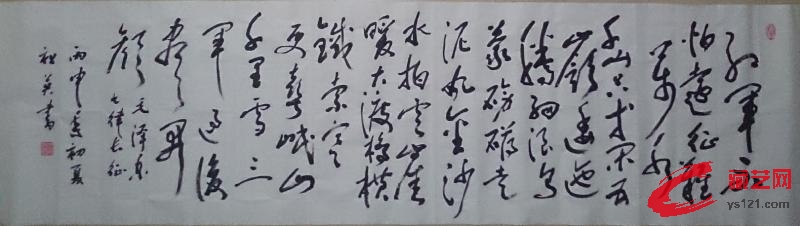 红軍不
怕遠征難
萬水
千山只等闲五
嶺逶迤
腾细浪烏
蒙磅礴走
泥丸金沙
水拍雲崖
暖大渡橋横
鐵索寒
更喜岷山
千里雪三
軍過後
盡开
颜
毛澤东
七律長征
丙申年初夏
英書
藏艺网
ys121.com